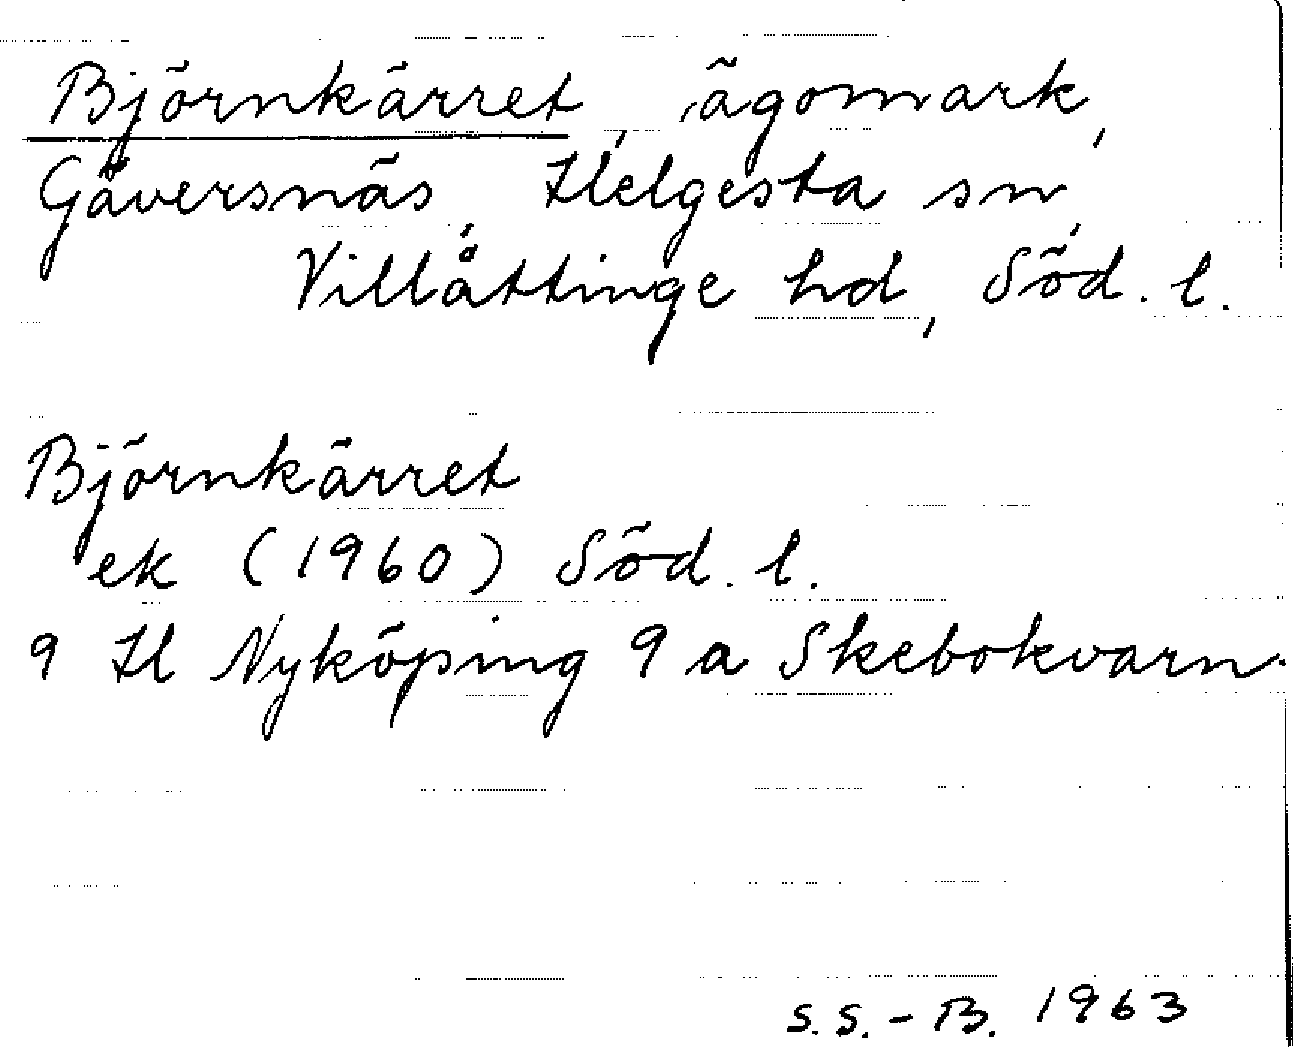 Björnkärret, ägomark,
Gäversnäs, Helgesta sn,
Villåttinge hd, Söd. l.
Björnkärret
ek (1960) Söd. l.
9 H Nyköping 9 a Skebokvarn.
S. S. - B. 1963